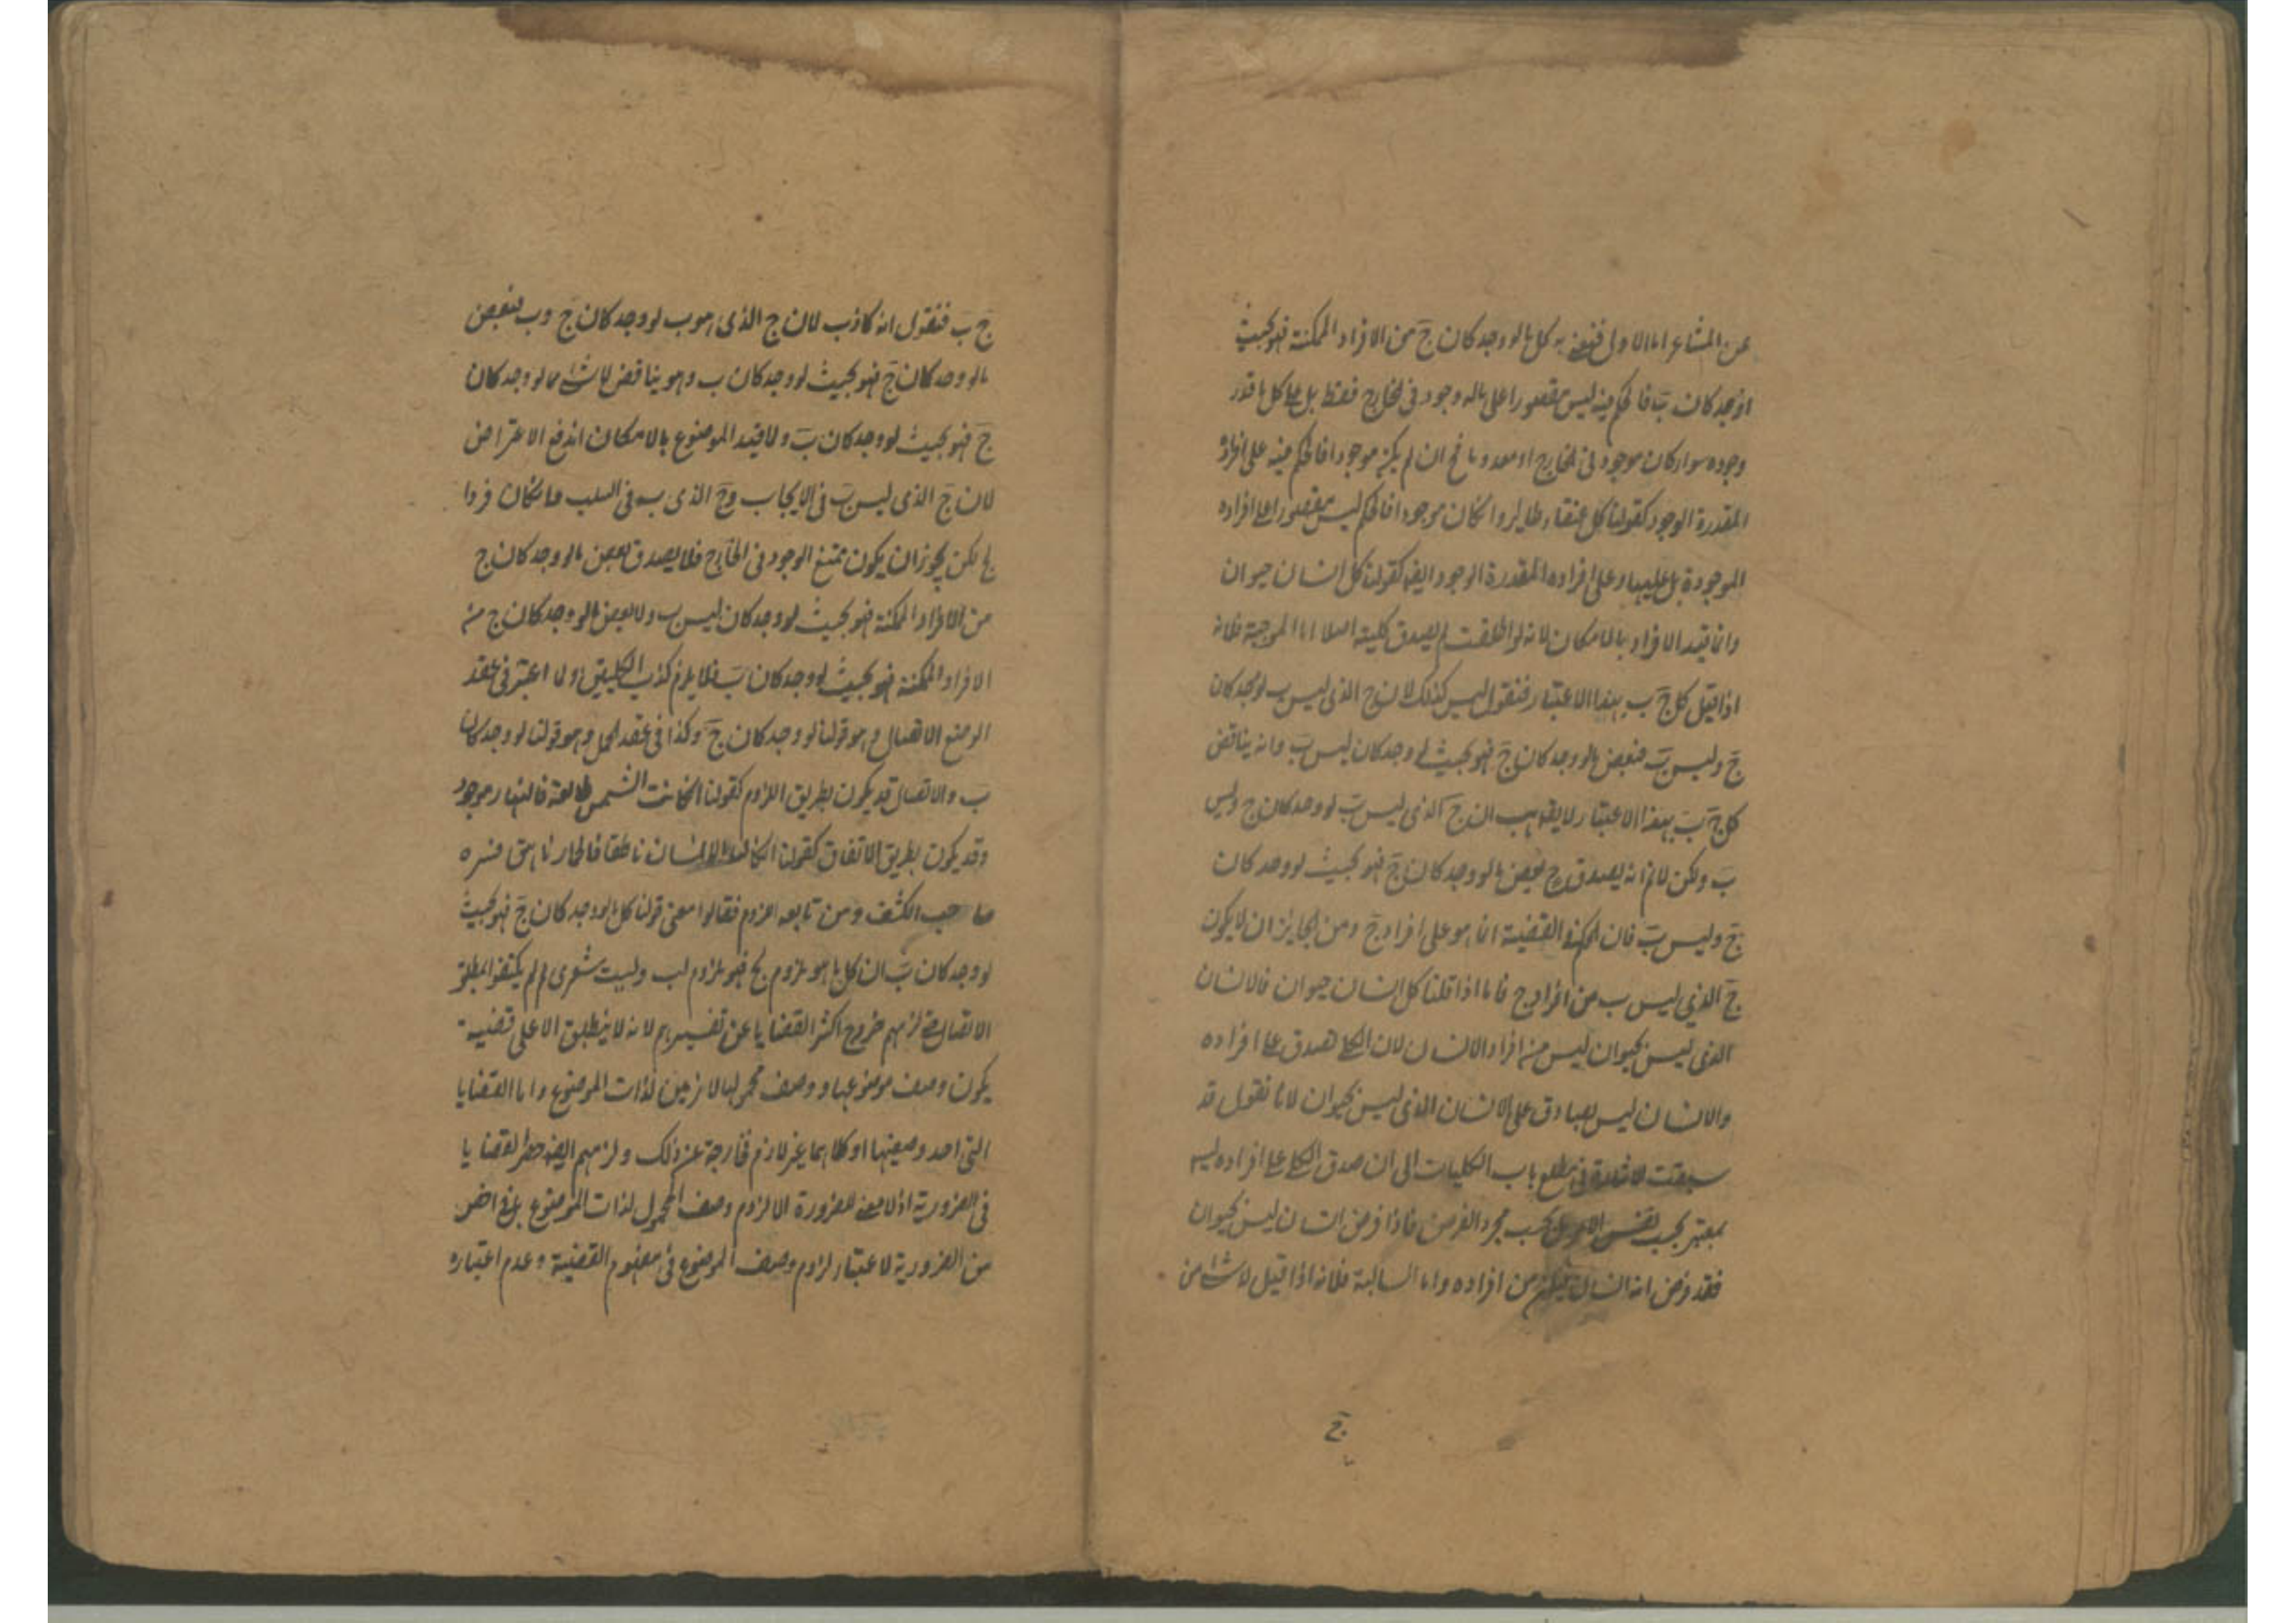 عن المشاعر اما الاولى فنعنى به كل ما لو وجد كان ج من الافراد الممكنة فهو بحيث
لو وجد كان ب فالحكم فيه ليس مقصورا على ما له وجود فى الخارج فقط بل على كل ما قدر
وجوده سواء كان موجودا فى الخارج او معدوما فح ان لم يكن موجودا فالحكم فيه على افراده
المقدرة الوجود كقولنا كل عنقاء طاير وان كان موجودا فالحكم ليس مقصورا على افراده
الموجودة بل عليها وعلى افراده المقدرة الوجود ايضا كقولنا كل انسان حيوان
وانما قيد الافراد بالامكان لانه لو اطلقت لم يصدق كلية اصلا اما الموجبة فلانه
اذا قيل كل ج ب بهذا الاعتبار فنقول ليس كذلك لان ج الذى ليس ب لو وجد كان
ج وليس ب فبعض ما لو وجد كان ج فهو بحيث لو وجد كان ليس ب وانه يناقض
كل ج ب بهذا الاعتبار لا يقال هب ان ج الذى ليس ب لو وجد كان ج وليس
ب ولكن لا نم انه يصدق ح بعض ما لو وجد كان ج فهو بحيث لو وجد كان
ج وليس ب فان الحكم فى القضية انما هو على افراد ج ومن الجايز ان لا يكون
ج الذى ليس ب من افراد ج فاما اذا قلنا كل انسان حيوان فالانسان
الذى ليس بحيوان ليس من افراد الانسان لان الكلى صدق على افراده
والانسان ليس بصادق على الانسان الذى ليس بحيوان لانا نقول قد
سبقت الاشارة فى مطلع باب الكليات الى ان صدق الكلى على افراده ليس
بمعتبر بحسب نفس الامر بل بحسب مجرد الفرض فاذا فرض انسان ليس بحيوان
فقد فرض انه انسان فيكون من افراده واما السالبة فلانه اذا قيل لا شئ من
ج
ج ب فنقول انه كاذب لان ج الذى هو ب لو وجد كان ج و ب فبعض
ما لو وجد كان ج فهو بحيث لو وجد كان ب وهو يناقض لا شئ مما لو وجد كان
ج فهو بحيث لو وجد كان ب ولما قيد الموضوع بالامكان اندفع الاعتراض
لان ج الذى ليس ب فى الايجاب وج الذى ب فى السلب وان كان فردا
لج لكن يجوز ان يكون ممتنع الوجود فى الخارج فلا يصدق بعض ما لو وجد كان ج
من الافراد الممكنة فهو بحيث لو وجد كان ليس ب ولا بعض ما لو وجد كان ج من
الافراد الممكنة فهو بحيث لو وجد كان ب فلا يلزم كذب الكليتين ولما اعتبر فى عقد
الوضع الاتصال وهو قولنا لو وجد كان ج وكذا فى عقد الحمل وهو قولنا لو وجد كان
ب والاتصال قد يكون بطريق اللزوم كقولنا ان كانت الشمس طالعة فالنهار موجود
وقد يكون بطريق الاتفاق كقولنا ان كان الانسان ناطقا فالحمار ناهق فسره
صاحب الكشف ومن تابعه باللزوم فقالوا معنى قولنا كل ما لو وجد كان ج فهو بحيث
لو وجد كان ب ان كل ما هو ملزوم لج فهو ملزوم لب وليت شعرى لم لم يكتفوا بمطلق
الاتصال حتى لزمهم خروج اكثر القضايا عن تفسيرهم لانه لا ينطبق الا على قضية
يكون وصف موضوعها ووصف محمولها لازمين لذات الموضوع واما القضايا
التى احد وصفيها او كلاهما غير لازم فخارجة عن ذلك ولزمهم ايضا حصر القضايا
فى الضرورية اذ لا معنى للضرورة الا لزوم وصف المحمول لذات الموضوع بل فى اخص
من الضرورية لاعتبار لزوم وصف الموضوع فى مفهوم القضية وعدم اعتباره